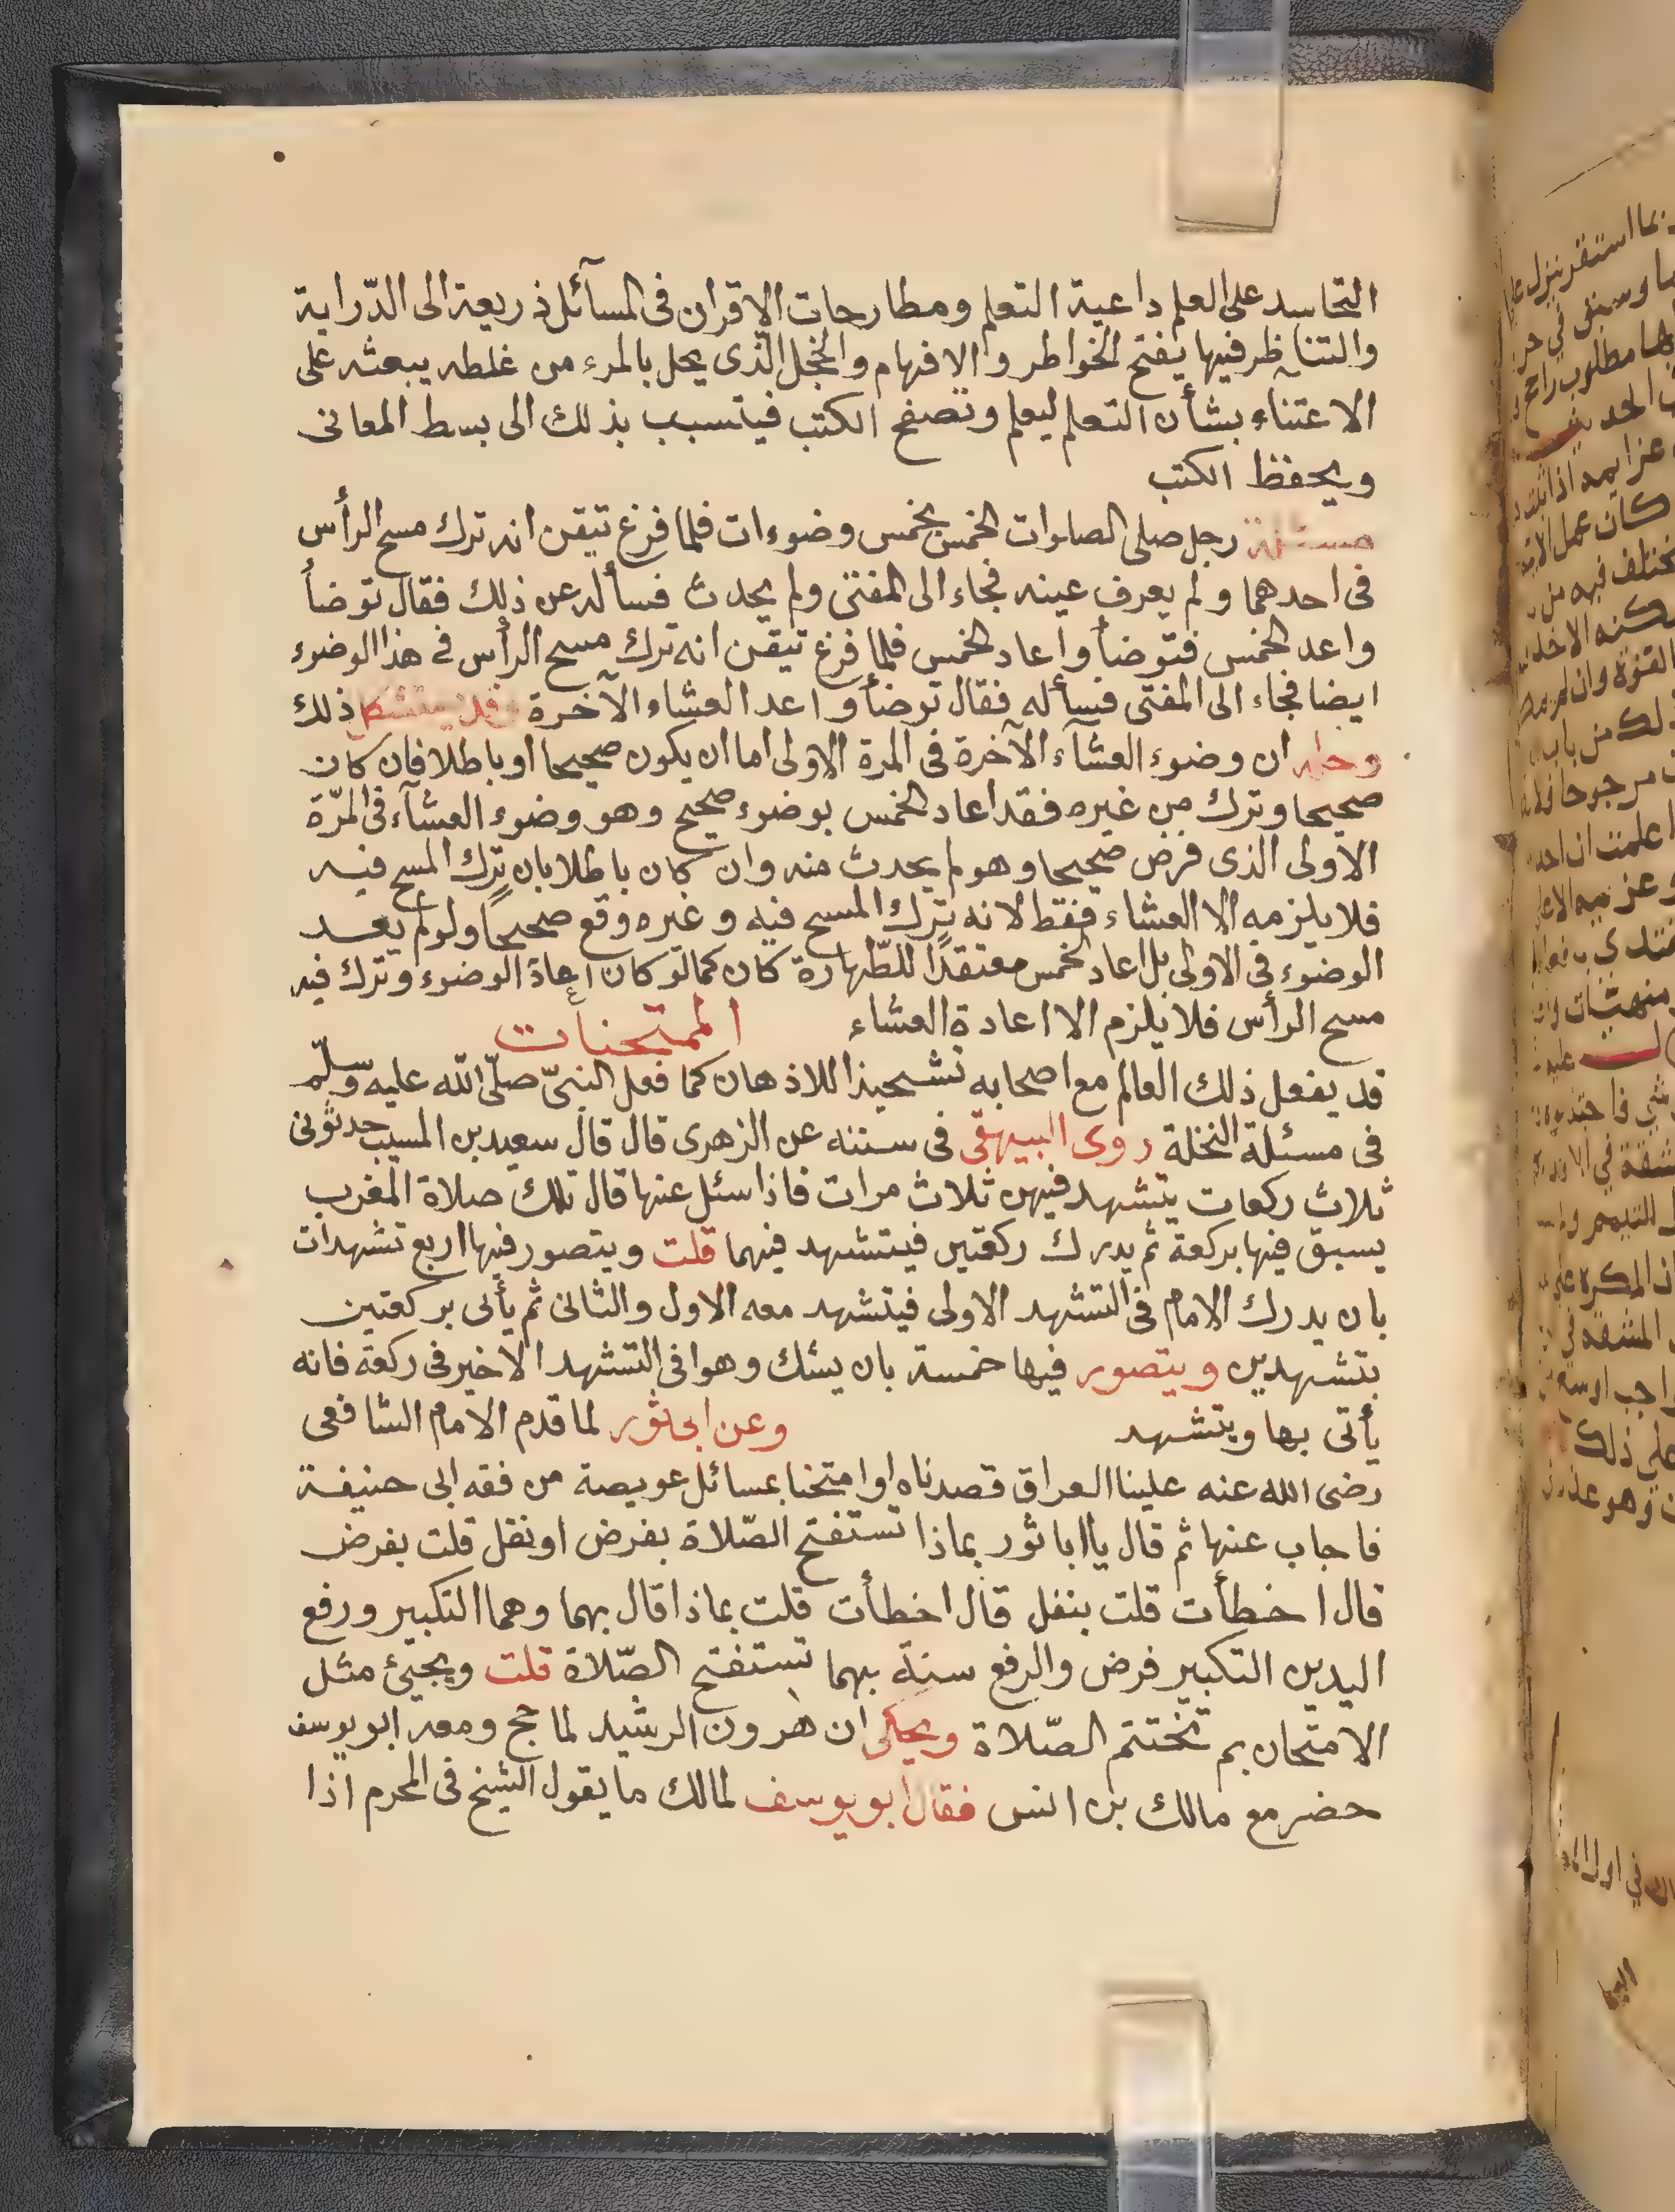 التحاسد على العلم داعية التعلم ومطارحات الاقران فى المسآئل ذريعة الى الدّراية
والتناظر فيها يفتح الخواطر والافهام والخجل الّذى يحل بالمرء من غلطه يبعثه على
الاعتناء بشأن التعلم ليعلم وتصفح الكتب فيتسبب بذلك الى بسط المعانى
ويحفظ الكتب
مسئلة رجل صلى الصلوات الخمس بخمس وضوءات فلما فرغ تيقن انه ترك مسح الرأس
فى احدهما ولم يعرف عينه فجاء الى المفتى ولم يحدث فسأله عن ذلك فقال توضأ
واعد الخمس فتوضأ واعاد الخمس فلما فرغ تيقن انه ترك مسح الرأس فى هذا الوضوء
ايضا فجاء الى المفتى فسأله فقال توضأ واعد العشاء الآخرة فقد يستشكل ذلك
وحله ان وضوء العشآء الآخرة فى المرة الاولى اما ان يكون صحيحا او باطلا فان كان
صحيحا وترك من غيره فقد اعاد الخمس بوضوء صحيح وهو وضوء العشآء فى المرّة
الاولى الذى فرض صحيحا وهو لم يحدث منه وان كان باطلا بان ترك المسح فيه
فلا يلزمه الا العشاء فقط لانه ترك المسح فيه وغيره وقع صحيحًا ولو لم يعد
الوضوء فى الاولى بل اعاد الخمس معتقدًا للطّهارة كان كما لو كان اعادة الوضوء وترك فيه
مسح الرأس فلا يلزم الا اعادة العشاء الممتحنات
قد يفعل ذلك العالم مع اصحابه تشحيذا للاذهان كما فعل النبىّ صلّى الله عليه وسلّم
فى مسئلة النخلة روى البيهقى فى سننه عن الزهرى قال قال سعيد بن المسيب حدثونى
ثلاث ركعات يتشهد فيهن ثلاث مرات فاذا سئل عنها قال تلك صلاة المغرب
يسبق فيها بركعة ثم يدرك ركعتين فيتشهد فيهما قلت ويتصور فيها اربع تشهدات
بان يدرك الامام فى التشهد الاولى فيتشهد معه الاول والثانى ثم يأتى بركعتين
بتشهدين ويتصور فيها خمسة بان يشك وهوا فى التشهد الاخير فى ركعة فانه
يأتى بها ويتشهد وعن ابى ثور لما قدم الامام الشافعى
رضى الله عنه علينا العراق قصدناه اوامتحنا بمسائل عويصة من فقه ابى حنيفة
فاجاب عنها ثم قال ياابا ثور بماذا تستفتح الصّلاة بفرض او نفل قلت بفرض
قال اخطأت قلت بنفل قال اخطأت قلت بماذا قال بهما وهما التكبير ورفع
اليدين التكبير فرض والرفع سنة بهما تستفتح الصّلاة قلت ويجيئ مثل
الامتحان بم تختتم الصّلاة ويحكى ان هرون الرشيد لما حج ومعه ابو يوسف
حضر مع مالك بن انس فقال ابو يوسف لمالك ما يقول الشيخ فى المحرم اذا